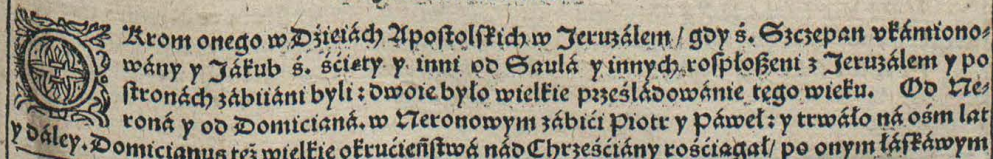 OKrom onego w Dźieiách Apostolskich w Jeruzálem / gdy ś. Szczepan vkámiono-
wány y Jákub ś. śćięty y inni od Saulá y innych rospłoßeni z Jeruzálem y po
stronách zábiiáni byli : dwoie było wielkie prześládowánie tego wieku. Od Ne-
roná y od Domicianá. w Neronowym zábići Piotr y Páweł : y trwáło ná ośm lat
y dáley. Domicianus też wielkie okrućieństwá nád Chrześćiány rośćiągał / po onym łáskáwym